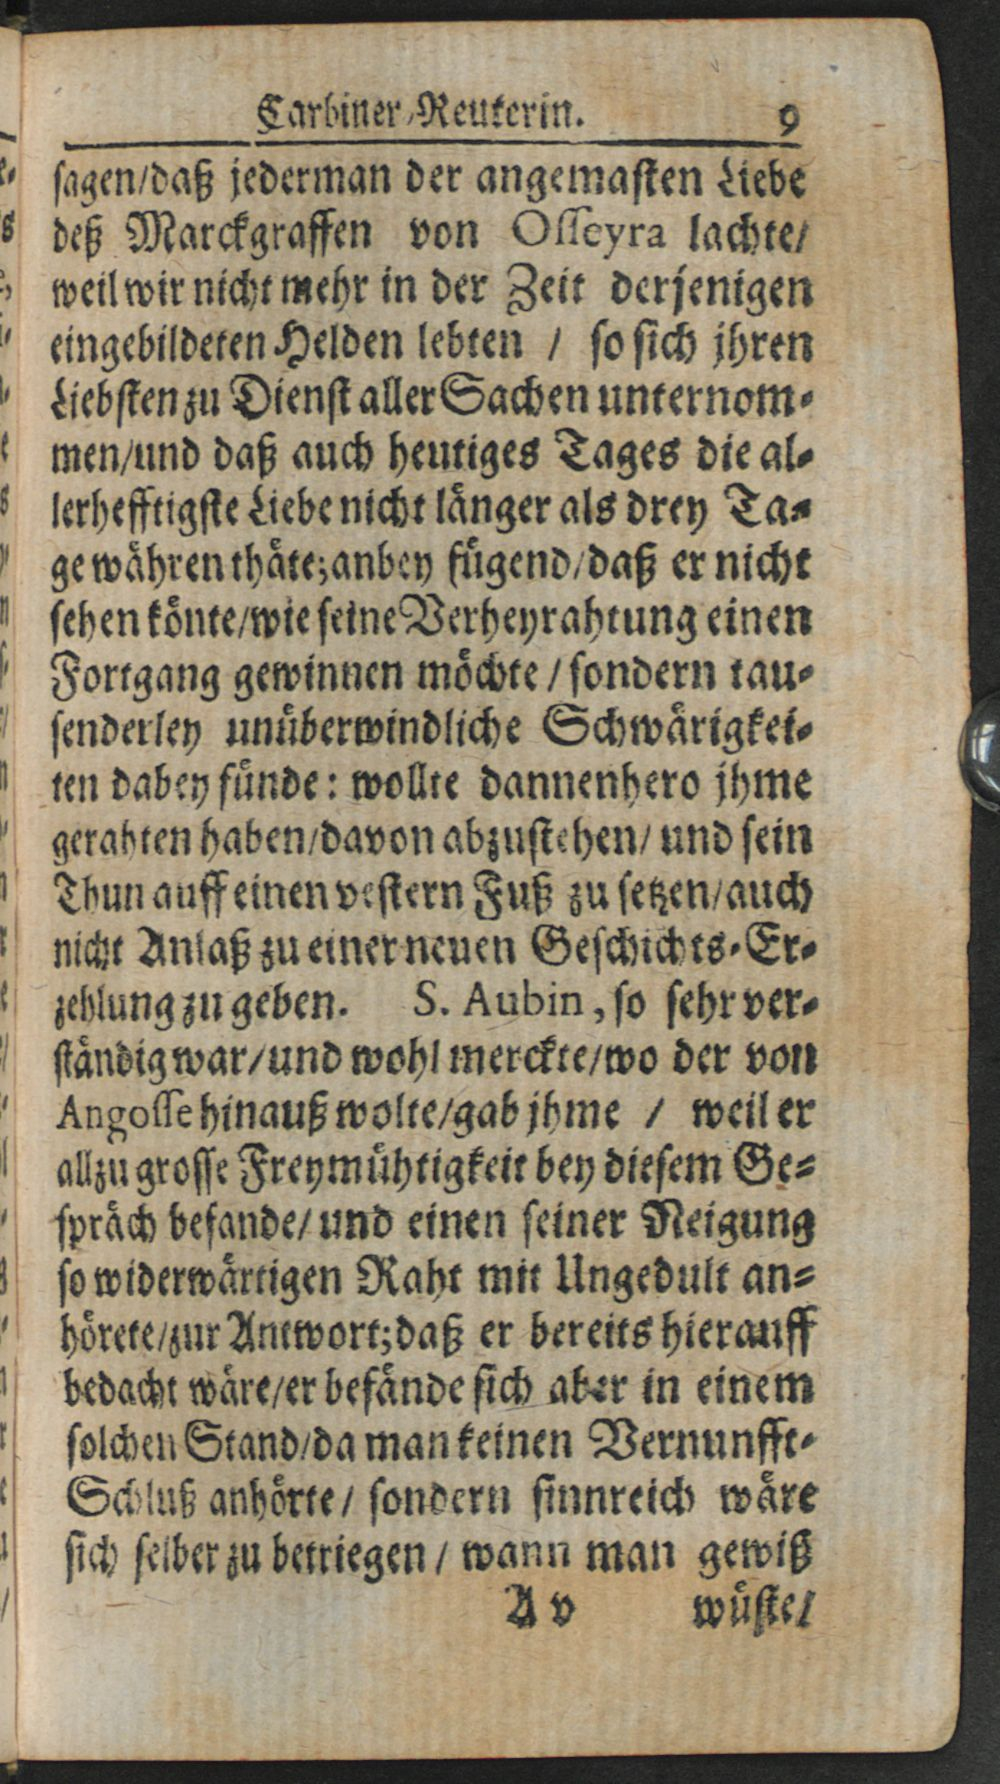 Carbiner-Reuterin. 9
sagen/daß jederman der angemasten Liebe
deß Marckgraffen von Osseyra lachte/
weil wir nicht mehr in der Zeit derjenigen
eingebildeten Helden lebten / so sich jhren
Liebsten zu Dienst aller Sachen unternom-
men/und daß auch heutiges Tages die al-
lerhefftigste Liebe nicht länger als drey Ta-
ge währen thäte; anbey fügend/daß er nicht
sehen könte/wie seine Verheyrahtung einen
Fortgang gewinnen möchte / sondern tau-
senderley unüberwindliche Schwärigkei-
ten dabey fünde: wollte dannenhero jhme
gerahten haben/davon abzustehen/ und sein
Thun auff einen vestern Fuß zu setzen/auch
nicht Anlaß zu einer neuen Geschichts-Er-
zehlung zu geben. S. Aubin, so sehr ver-
ständig war/und wohl merckte/wo der von
Angosse hinauß wolte/gab jhme / weil er
allzu grosse Freymühtigkeit bey diesem Ge-
spräch befande/ und einen seiner Neigung
so widerwärtigen Raht mit Ungedult an-
hörete/zur Antwort; daß er bereits hierauff
bedacht wäre/er befände sich aber in einem
solchen Stand/da man keinen Vernunfft-
Schluß anhörte/ sondern sinnreich wäre
sich selber zu betriegen / wann man gewiß
A v wüste/